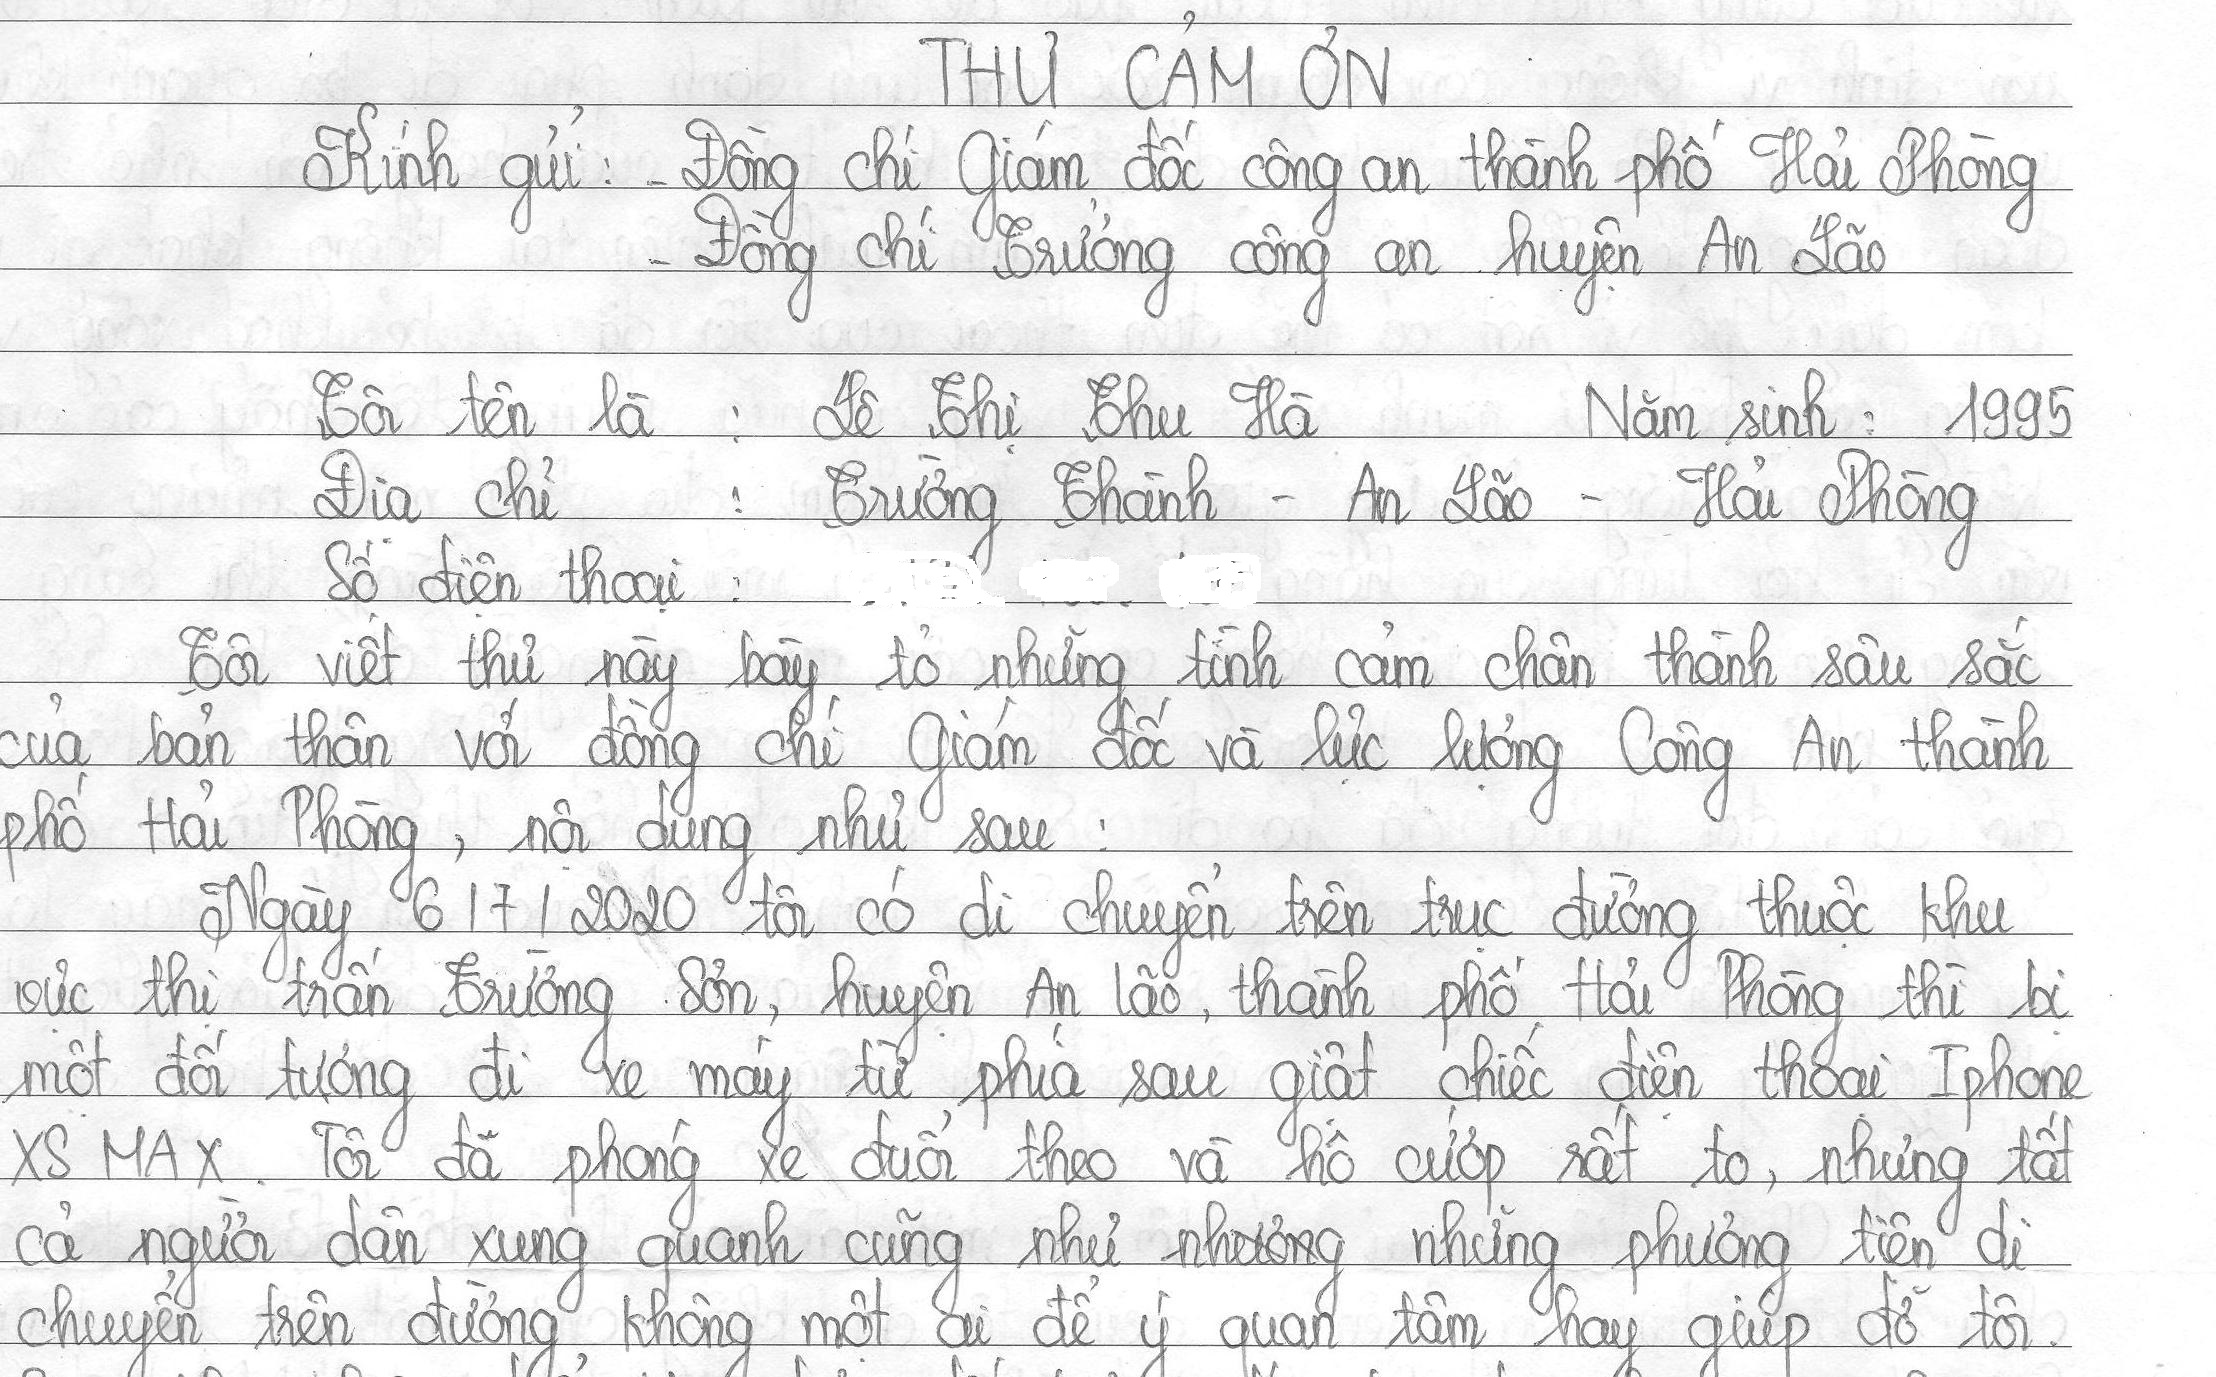 THƯ CẢM ƠN
Kính gửi: - Đồng chí Giám đốc công an thành phố Hải Phòng
- Đồng chí Trưởng công an huyện An Lão
Tôi tên là : Lê Thị Thu Hà Năm sinh: 1995
Địa chỉ : Trường Thành - An Lão - Hải Phòng
Số điện thoại :
Tôi viết thư này bày tỏ những tình cảm chân thành sâu sắc
của bản thân với đồng chí Giám đốc và lực lượng Công An thành
phố Hải Phòng, nội dung như sau :
Ngày 6/7/2020 tôi có di chuyển trên trục đường thuộc khu
vực thị trấn Trường Sơn, huyện An Lão, thành phố Hải Phòng thì bị
một đối tượng đi xe máy từ phía sau giật chiếc điện thoại Iphone
XS MAX. Tôi đã phóng xe đuổi theo và hô cướp rất to, nhưng tất
cả người dân xung quanh cũng như những phương tiện di
chuyển trên đường không một ai để ý quan tâm hay giúp đỡ tôi.